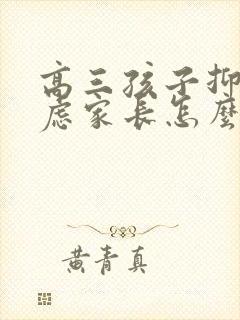 高三孩子抑
虑家长怎麼
黄青真